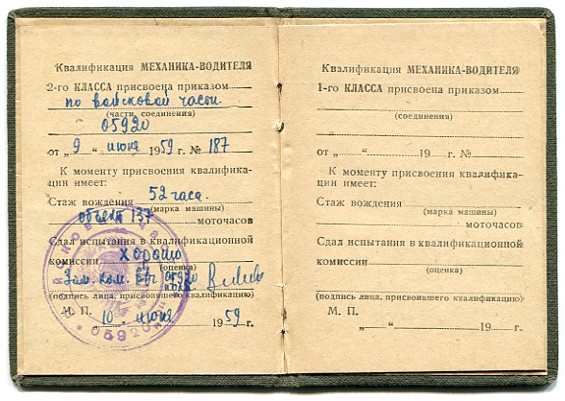 Квалификация МЕХАНИКА-ВОДИТЕЛЯ
2-го КЛАССА присвоена приказом
по войсковой части
(части, соединения)
05920
от „ 9 “ июня 1959 г. № 187
К моменту присвоения квалифика-
ции имеет:
Стаж вождения 52 часа.
(марка машины)
объект 137 моточасов
Сдал испытания в квалификационной
комиссии хорошо
(оценка)
Зам. ком. 05920
(подпись лица, присвоившего квалификацию)
М. П. 10 июня 1959 г.
05920
Квалификация МЕХАНИКА-ВОДИТЕЛЯ
1-го КЛАССА присвоена приказом
(соединения)
от „ “ 19 г. №
К моменту присвоения квалифика-
ции имеет:
Стаж вождения
(марка машины)
моточасов
Сдал испытания в квалификационной
комиссии
(оценка)
(подпись лица, присвоившего квалификацию)
М. П.
„ “ 19 г.